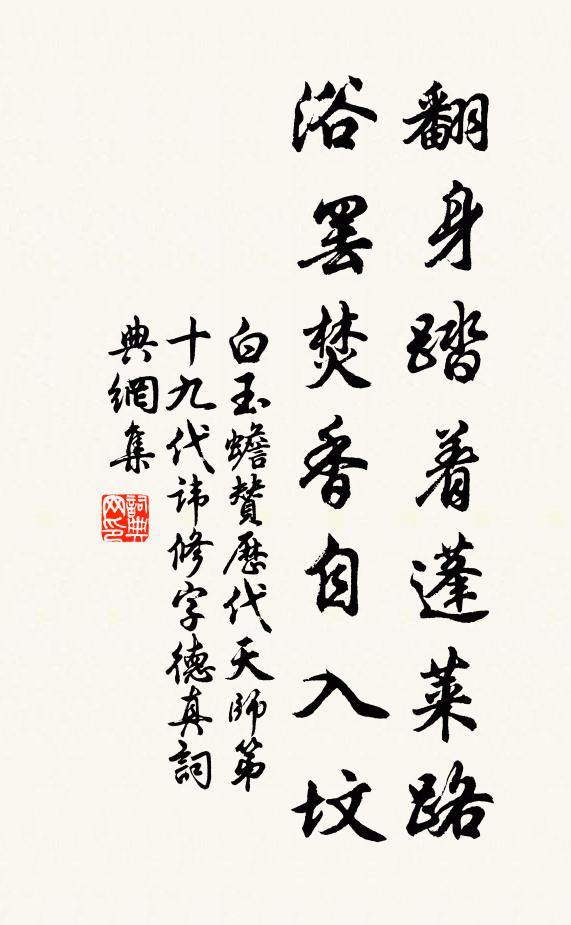 翻身踏着蓬莱路
浴罢焚香自入坟
白玉蟾赞历代天师第
十九代讳修字德真词
典網集
詞典網印